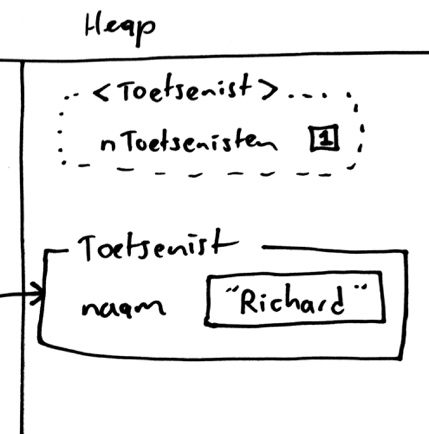 Heap
<Toetsenist>
nToetsenisten 1
Toetsenist
naam "Richard"